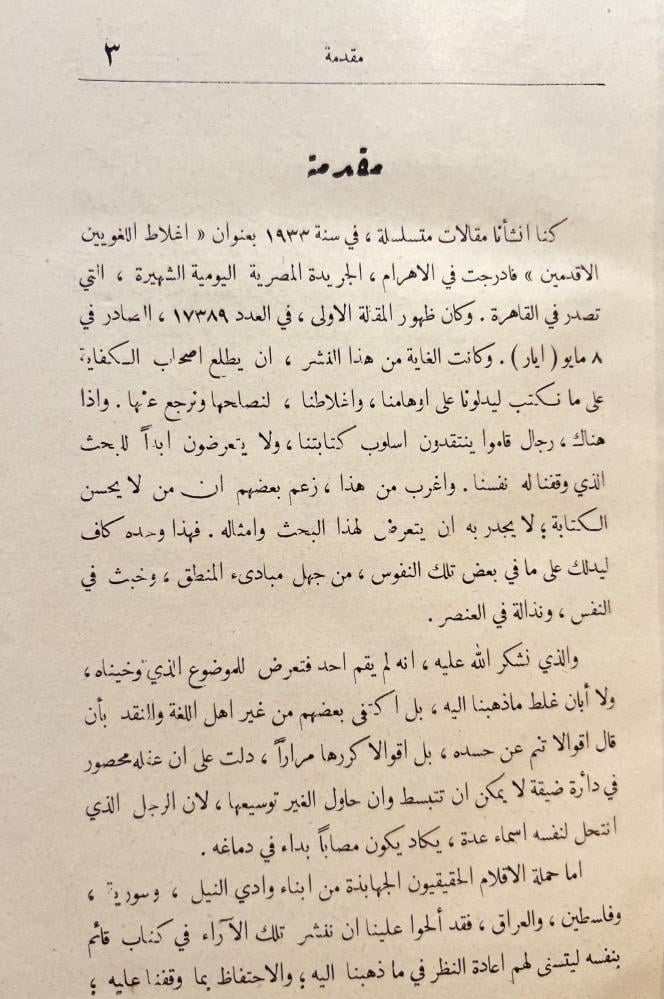 ٣
مقدمة
مقدمة
كنا انشأنا مقالات متسلسلة ، في سنة ١٩٣٣ بعنوان « اغلاط اللغويين
الاقدمين » فادرجت في الاهرام ، الجريدة المصرية اليومية الشهيرة ، التي
تصدر في القاهرة . وكان ظهور المقالة الاولى ، في العدد ١٧٣٨٩ ، الصادر في
٨ مايو ( ايار ) . وكانت الغاية من هذا النشر ، ان يطلع اصحاب الكفاية
على ما نكتب ليدلونا على اوهامنا ، واغلاطنا ، لنصلحها ونرجع عنها . واذا
هناك ، رجال قاموا ينتقدون اسلوب كتابتنا ، ولا يتعرضون ابداً للبحث
الذي وقفنا له نفسنا . واغرب من هذا ، زعم بعضهم ان من لا يحسن
الكتابة ؛ لا يجدر به ان يتعرض لهذا البحث وامثاله . فهذا وحده كاف
ليدلك على ما في بعض تلك النفوس ، من جهل مبادىء المنطق ، وخبث في
النفس ، ونذالة في العنصر .
والذي نشكر الله عليه ، انه لم يقم احد فتعرض للموضوع الذي توخيناه ،
ولا أبان غلط ماذهبنا اليه ، بل اكتفى بعضهم من غير اهل اللغة والنقد بأن
قال اقوالا تنم عن حسده ، بل اقوالا كررها مراراً ، دلت على ان عقله محصور
في دأرة ضيقة لا يمكن ان تتبسط وان حاول الغير توسيعها ، لان الرجل الذي
انتحل لنفسه اسماء عدة ، يكاد يكون مصاباً بداء في دماغه .
اما حملة الاقلام الحقيقيون الجهابذة من ابناء وادي النيل ، وسورية ،
وفلسطين ، والعراق ، فقد ألحوا علينا ان ننشر تلك الآراء في كتاب قائم
بنفسه ليتسنى لهم اعادة النظر في ما ذهبنا اليه ؛ والاحتفاظ بما وقفنا عليه ؛